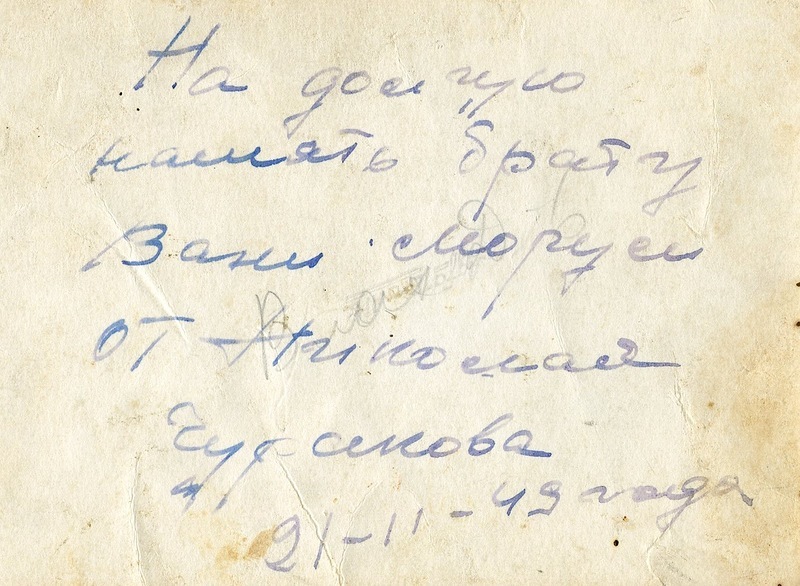 На долгую
память брату
Вани
от Николая
Чуракова
21-11-49 года